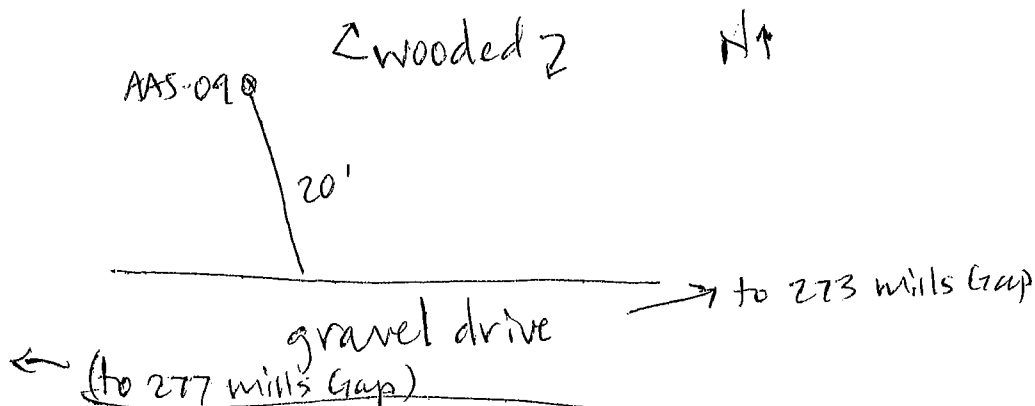 wooded
N
AAS-09
20'
to 273 mills Gap
gravel drive
(to 277 mills Gap)